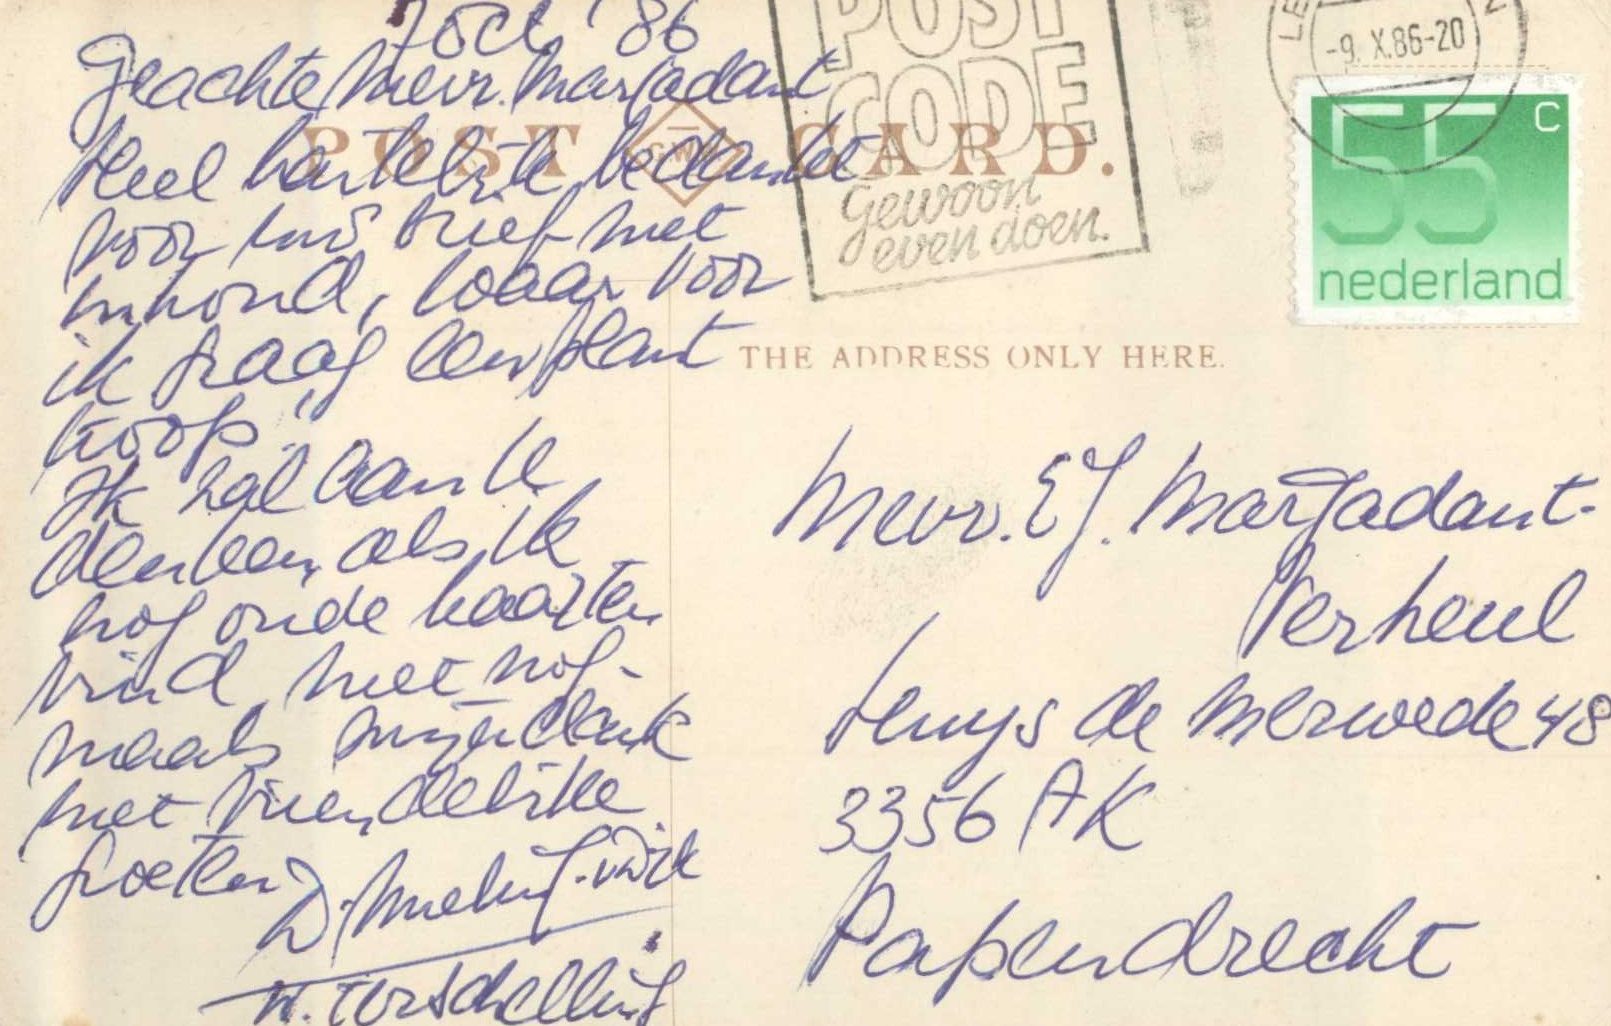 7 oct '86
Geachte Mevr. Marjadant
Heel hartelijk bedankt
voor uw brief met
inhoud, waar voor
ik graag een plant
koop.
Ik zal aan U
denken, als ik
nog oude kaarten
vind, met nog-
maals mijn dank
met vriendelijke
groeten
D.
W. Terschelling
POST CARD.
POST
CODE
gewoon
even doen.
LE
-9. X.86-20
55 c
nederland
THE ADDRESS ONLY HERE.
Mevr. E.J. Marjadant-
Verheul
Huys de Merwede 48
3356 AK
Papendrecht